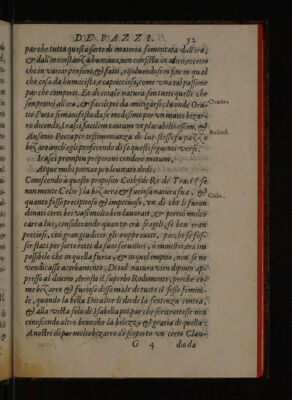 DE PAZZI. 52
par che tutta questa sorte di materia fomentata dall'ira,
& dall'inconstanza humana, non consista in altro, eccetto
che in variar pensieri, & fatti, risoluendosi in fine in qual
che cosa da humorista, e capricciosa, come una tal passione
par che comporti. Et di cotale natura son tutti quelli che
son proni all'ira, & facili poi da mitigarsi; là onde Ora-
tio Poeta si manifesta da se medesimo per un matto bizar-
ro dicendo, Irasci facilem tamen ut placabilis essem, &
Ausonio Poeta per testimonianza di lui stesso fu pazzo
bizaro anch'egli proferendo di se questi seguenti versi.
Oratio.
Auson.
Irasci promptus properavi condere motum,
Atque mihi pœnas pro levitate dedi.
Conoscendo à questo proposito Cothys Re de' Traci (se
non mente Celio) la bizarra & furiosa natura sua, &
Celio.
quanto fosse precipitoso & impetuoso, un dì che li furon
donati certi bei vasi molto ben lauorati, & perciò molto
cari a lui, considerando quanto era fragili, se ben eran
preciosi, con gran giudicio gli roppe tutti, perche se fos-
ser stati per sorte rotti da suoi seruitori, o ministri, era im
possibile che in quella furia, & in quel empito, non se ne
vendicasse acerbamente. Di tal natura vien dipinto ap-
presso al diuino Ariosto il superbo Rodomonte, perche co-
me bizarro & furioso disse mal di tutto il sesso femini-
le, quando la bella Doralice li diede la sentenza contra,
& alla vista sola di Isabella poi par che si ritratasse non
conoscendo altro bene che la belezza & gratia di quella:
A nostri dì par molto bizarro se scoperto un certo Clau-
G 4 dio da